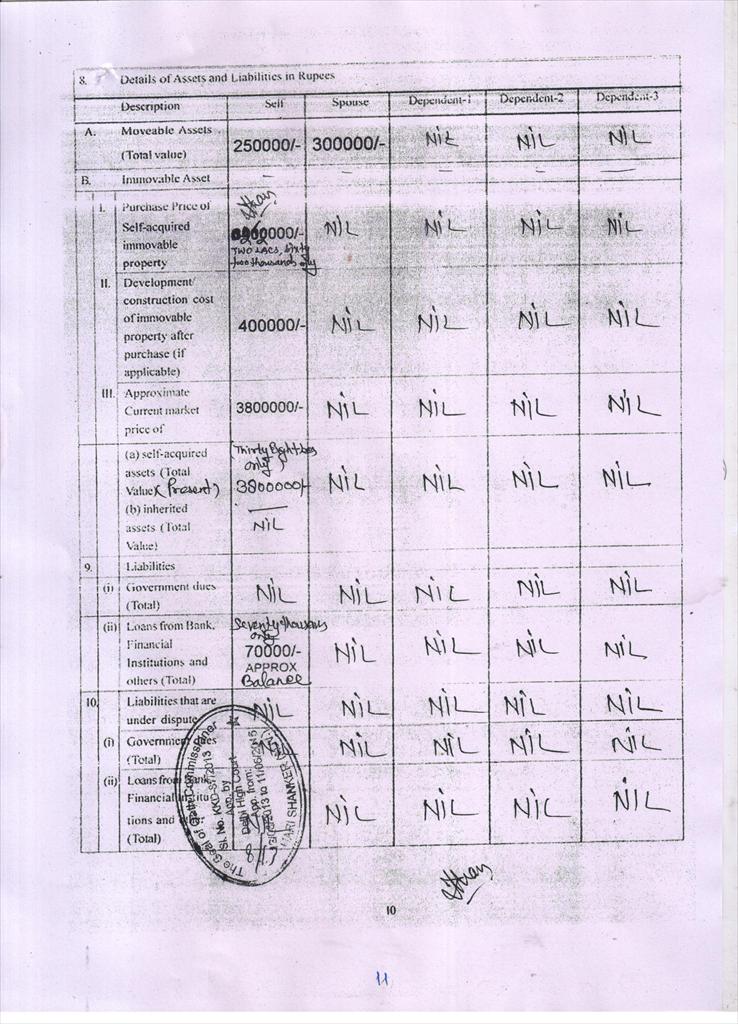 8. Details of Assets and Liabilities in Rupees
Description Self Spouse Dependent-1 Dependent-2 Dependent-3
A. Moveable Assets (Total value) 250000/- 300000/- NiL NiL NiL
B. Immovable Asset
I. Purchase Price of Self-acquired immovable property 0000/- TWO LACS, Sixty two thousands only NiL NiL NiL NiL
II. Development/ construction cost of immovable property after purchase (if applicable) 400000/- NiL NiL NiL NiL
III. Approximate Current market price of 3800000/- NiL NiL NiL NiL
(a) self-acquired assets (Total Value) (Present) (Thirty Eight Lacs only) 3800000/- NiL NiL NiL NiL
(b) inherited assets (Total Value) NiL
9. Liabilities
(i) Government dues (Total) NiL NiL NiL NiL NiL
(ii) Loans from Bank, Financial Institutions and others (Total) Seventy thousands only 70000/- APPROX Balance NiL NiL NiL NiL
10. Liabilities that are under dispute NiL NiL NiL NiL NiL
(i) Government dues (Total) NiL NiL NiL NiL NiL
(ii) Loans from Bank, Financial Institutions and other (Total) NiL NiL NiL NiL
The Seal of Oath Commissioner
App. by
Delhi High Court
App. from
HARI SHANKER
10
11